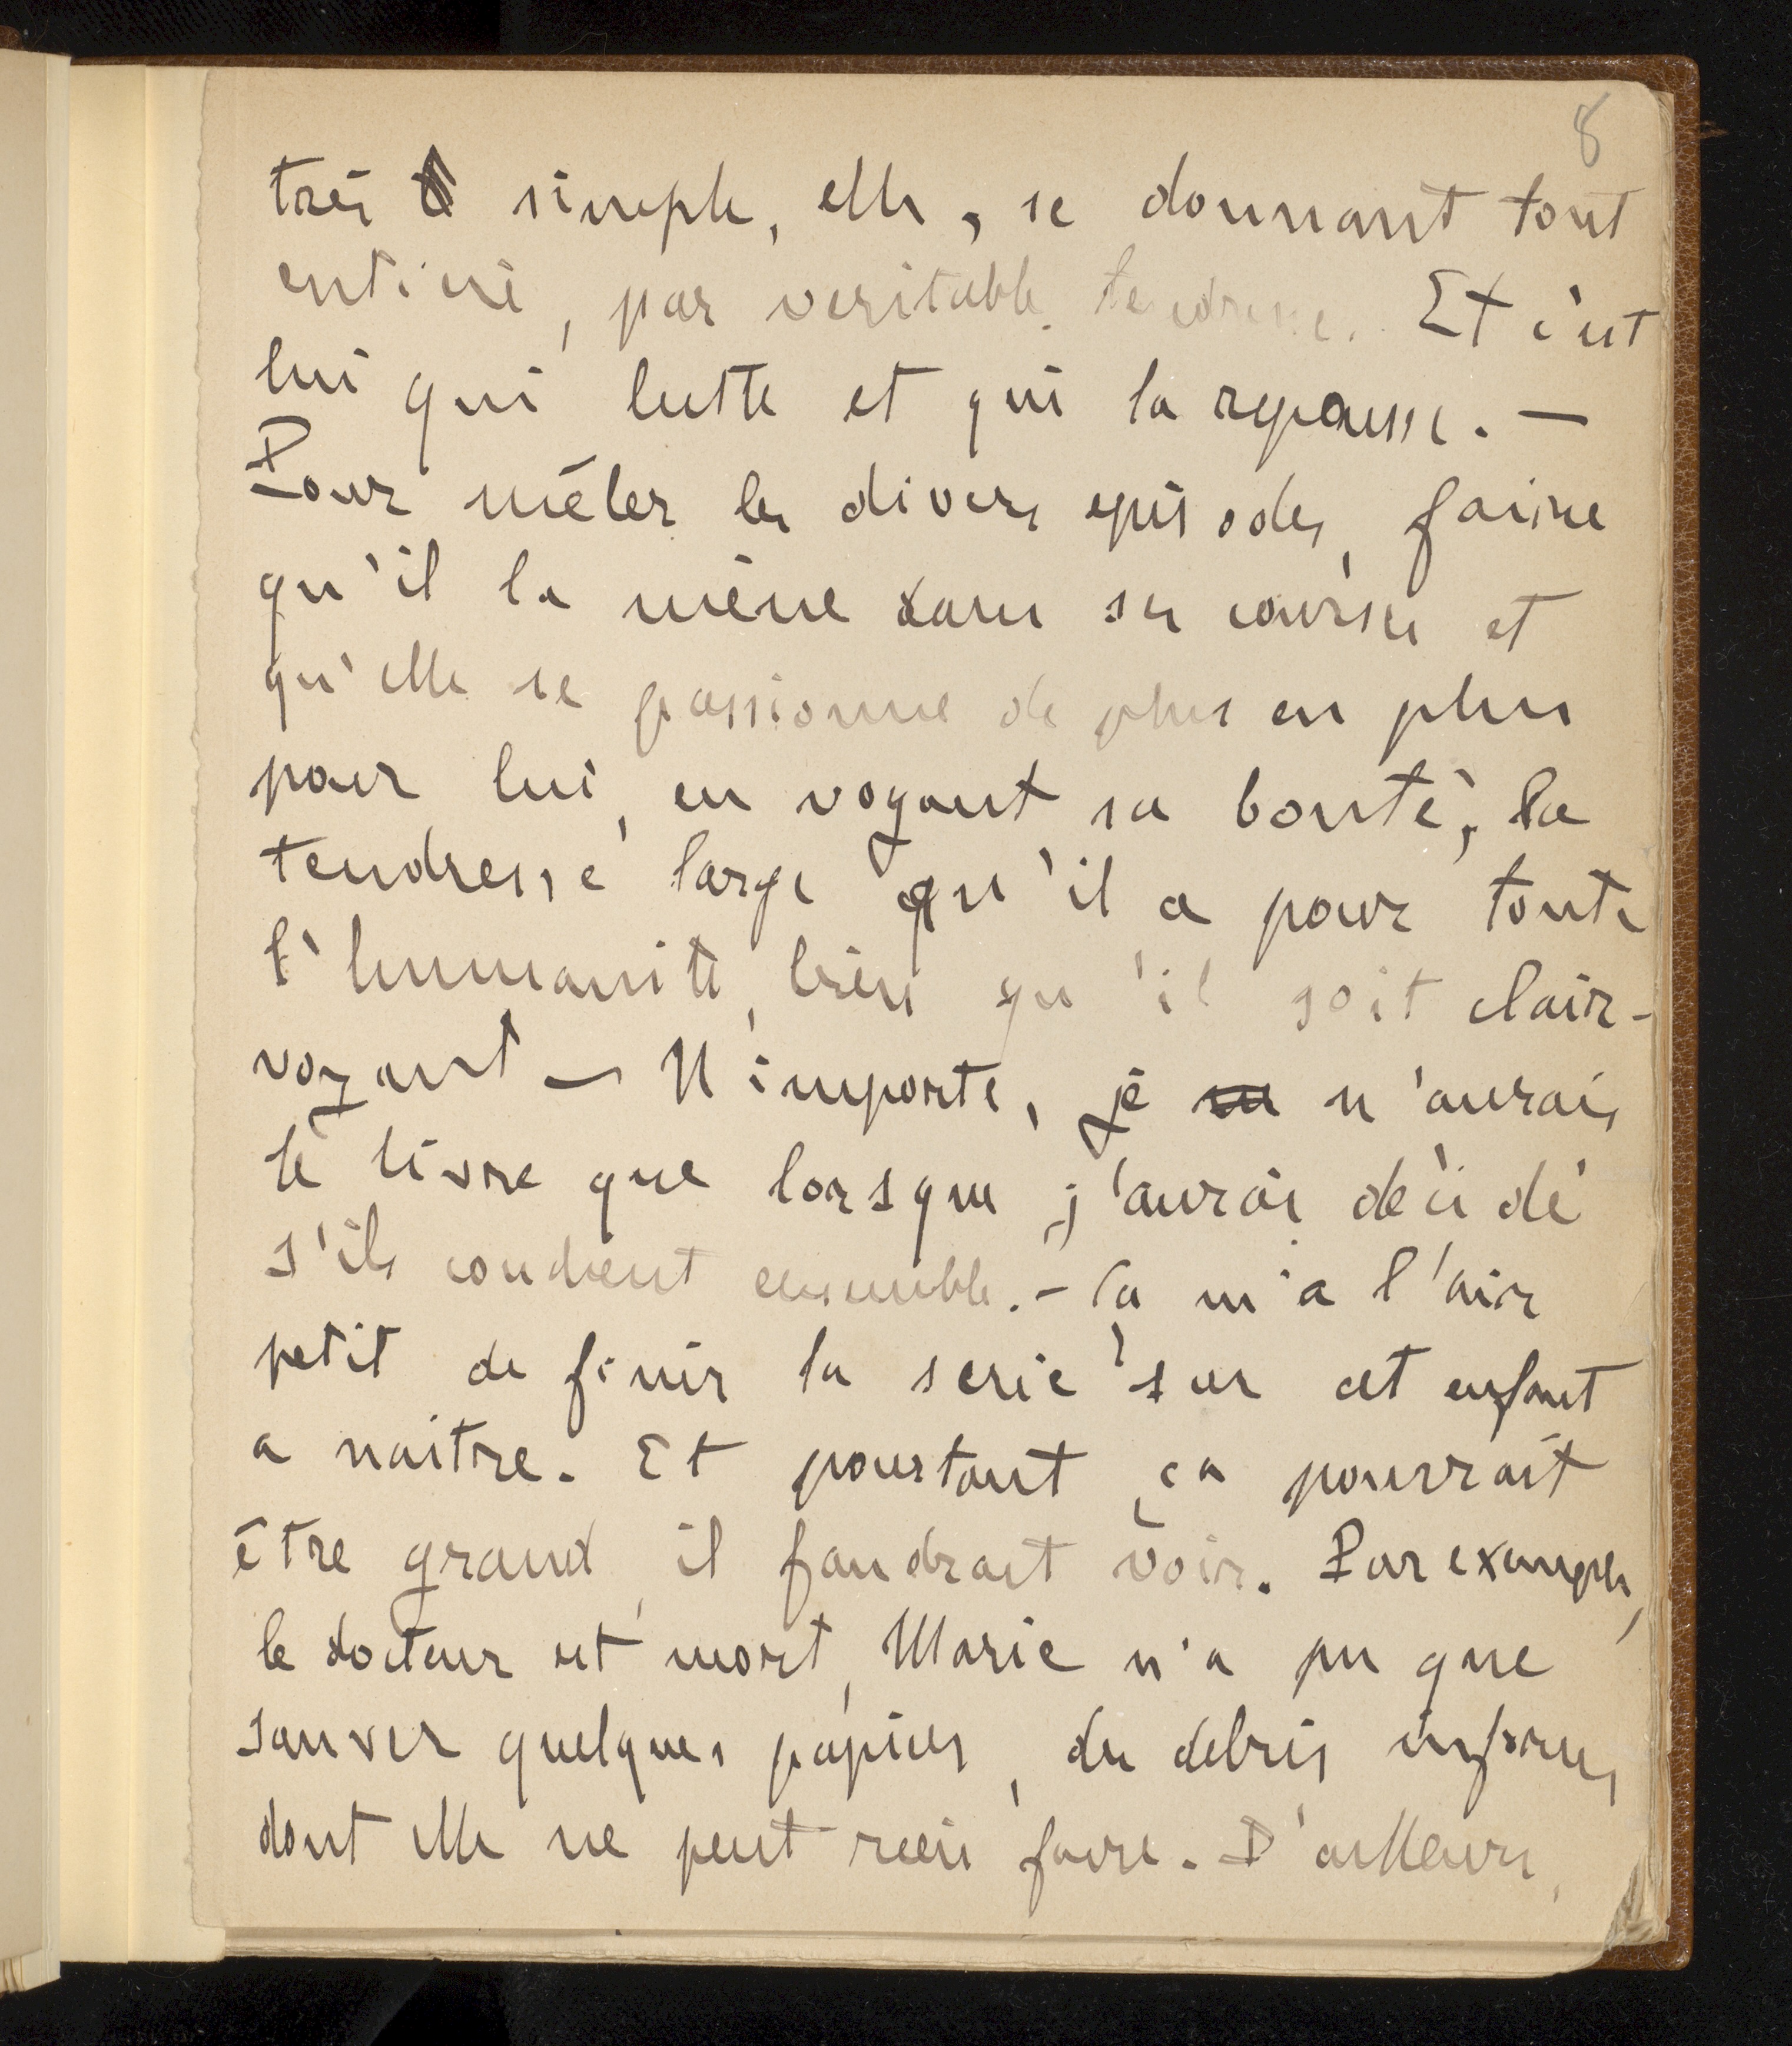 8
très simple, elle, se donnant tout
entière, par veritable tendresse. Et c'est
lui qui lutte et qui la repousse. —
Pour mêler les divers episodes, faire
qu'il la mène dans ses courses et
qu'elle se passionne de plus en plus
pour lui, en voyant sa bonté, la
tendresse large qu'il a pour toute
l'humanité, bien qu'il soit clair-
voyant — N'importe, je n'aurais
le livre que lorsque j'aurai décidé
s'ils couchent ensemble. — Ça m'a l'air
petit de finir la serie sur cet enfant
a naitre. Et pourtant ça pourrait
être grand, il faudrait voir. Par exemple,
le docteur est mort, Marie n'a pu que
sauver quelques papiers, des debris informes
dont elle ne peut rien faire. D'ailleurs,